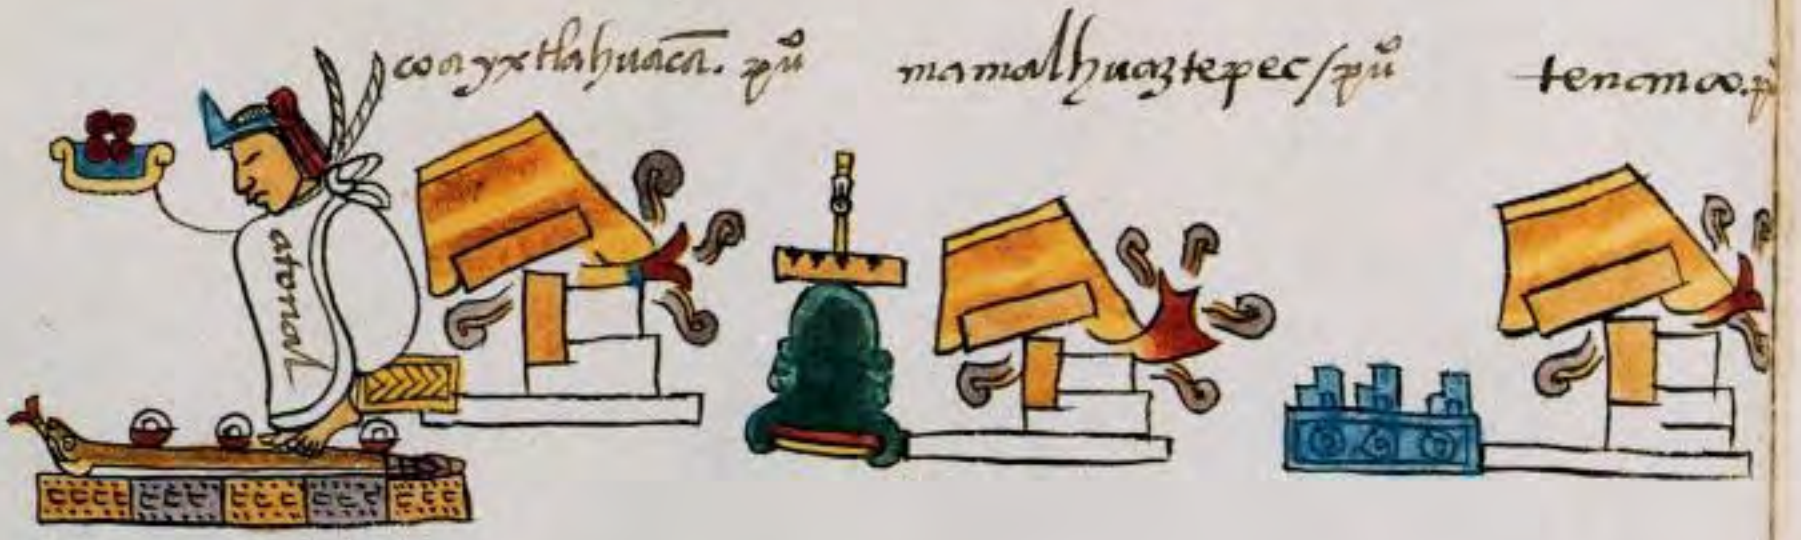 coayxtlahuacā. pũo
mamalhuaztepec / pũo
tenanco. p
atonal